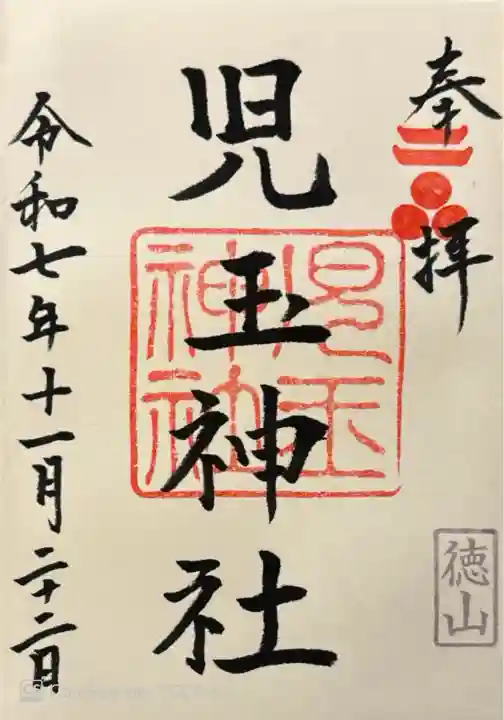 奉拝
児玉神社
児玉神社
徳山
令和七年十一月二十二日